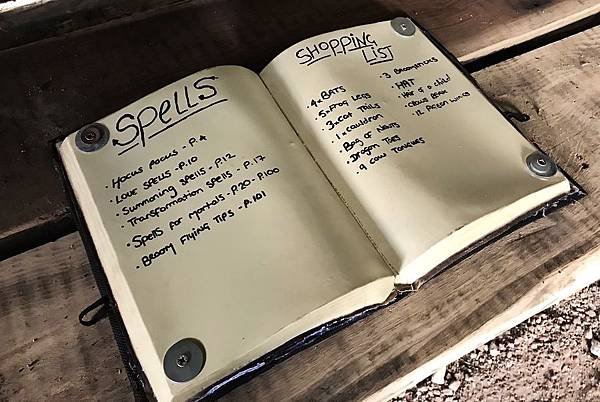 Spells
• Hocus Pocus - P.4
• Love Spells - P.10
• Summoning spells - P.12
• Transformation spells - P.17
• Spells for mortals - P.20 - P.100
• Broom Flying Tips - P.101
Shopping
List
• 4x Bats
• 5x Frog Legs
• 3x cat Tails
• 1x cauldron
• Bag of Newts
• Dragon Toes
• 9 cow Tongues
• 3 Broomsticks
• Hat
• Hair of a child
• Crows Beak
• 12 Pigeon Wings